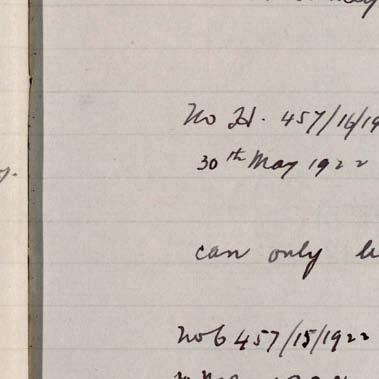 No H. 457/16/19
30th May 1922
can only
No 6 457/15/1922